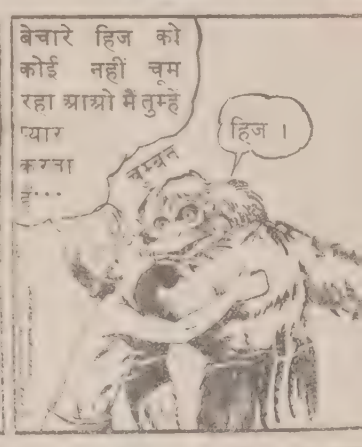 बेचारे हिज को
कोई नहीं चूम
रहा आओ मैं तुम्हें
प्यार
करता
हूं...
चुम्बन
हिज ।